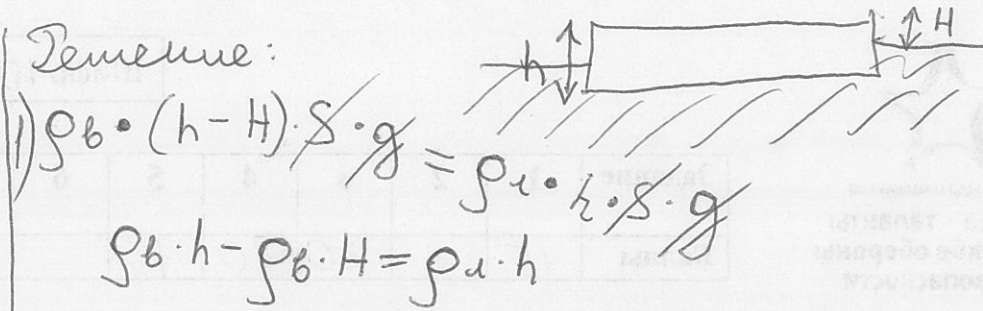 Решение:
h
H
1) ρв · (h - H) · S · g = ρл · h · S · g
ρв · h - ρв · H = ρл · h